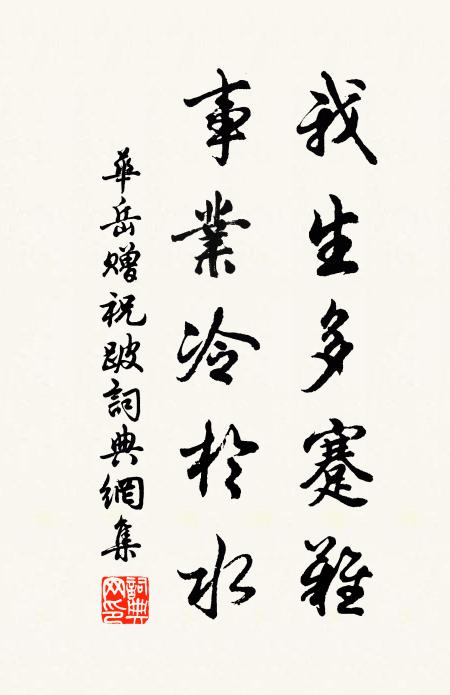 我生多蹇難
事業冷於水
華岳贈祝跛詞典網集
詞典網印